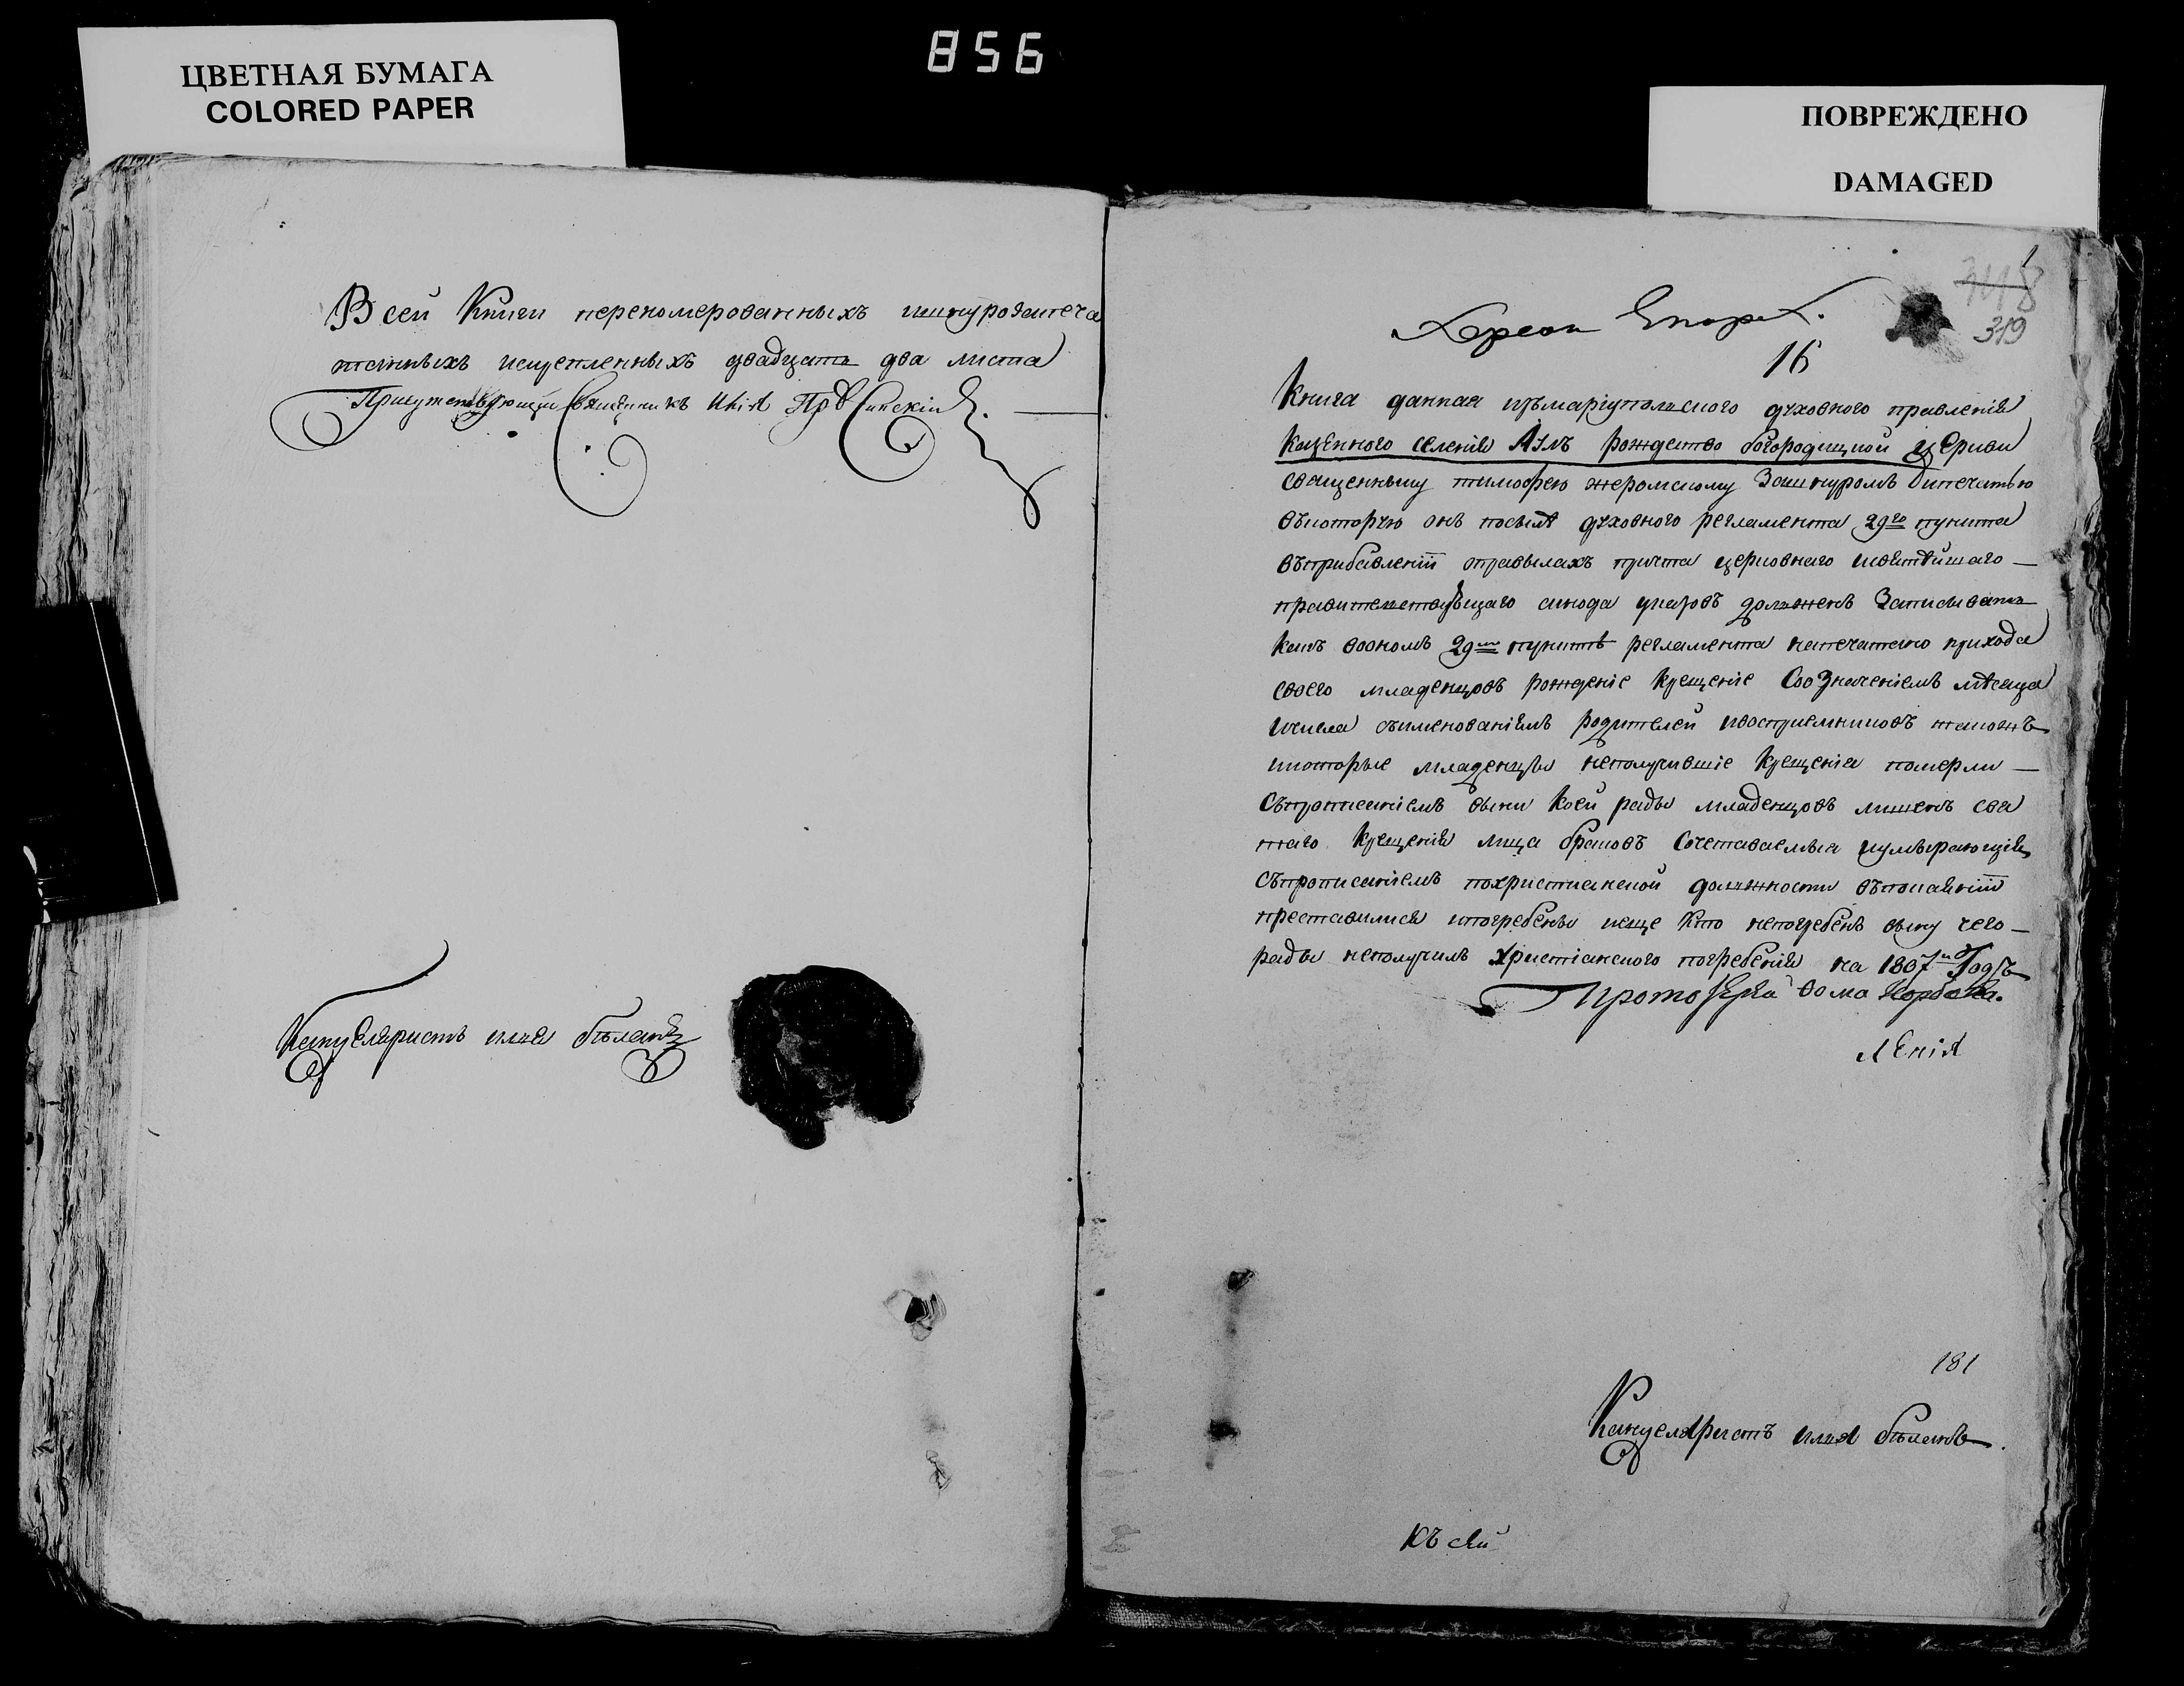 ЦВЕТНАЯ БУМАГА
COLORED PAPER
856
ПОВРЕЖДЕНО
DAMAGED
В сей Книги переномерованныхъ шнурозапеча
танныхъ искрепленныхъ двадцать два листа
Присутствующий Священникъ
Канцеляристъ илья
319
16
Книга данная измариупольского духовного правления
Казенного селения рождество богородицкой церкви
священнику тимофею жеромскому Зашнуромъ ипечатью
вкоторую онъ посылѣ духовного регламента 29го пункта
вприбавлении оправилахъ причта церковнаго исвятѣйшаго
правительствующаго синода указовъ долженъ Записывать
какъ воономъ 29мъ пунктѣ регламента напечатано прихода
своего младенцовъ рождение крещение Созначениемъ мѣсяца
ичисла сыименованиемъ родителей ивосприемниковъ такожъ
икоторые младенцы неполучившие крещения померли
Спрописаниемъ вины коей рады младенцовъ лишенъ свя
таго крещения лица браковъ Сочетаваемыя иумирающия
спрописаниемъ похристианской должности впокаянии
преставилися ипогребены иеще кто непогребенъ вину чего
рады неполучилъ христианского погребения на 1807й Годъ
181
Канцеляристъ илья
къ сей